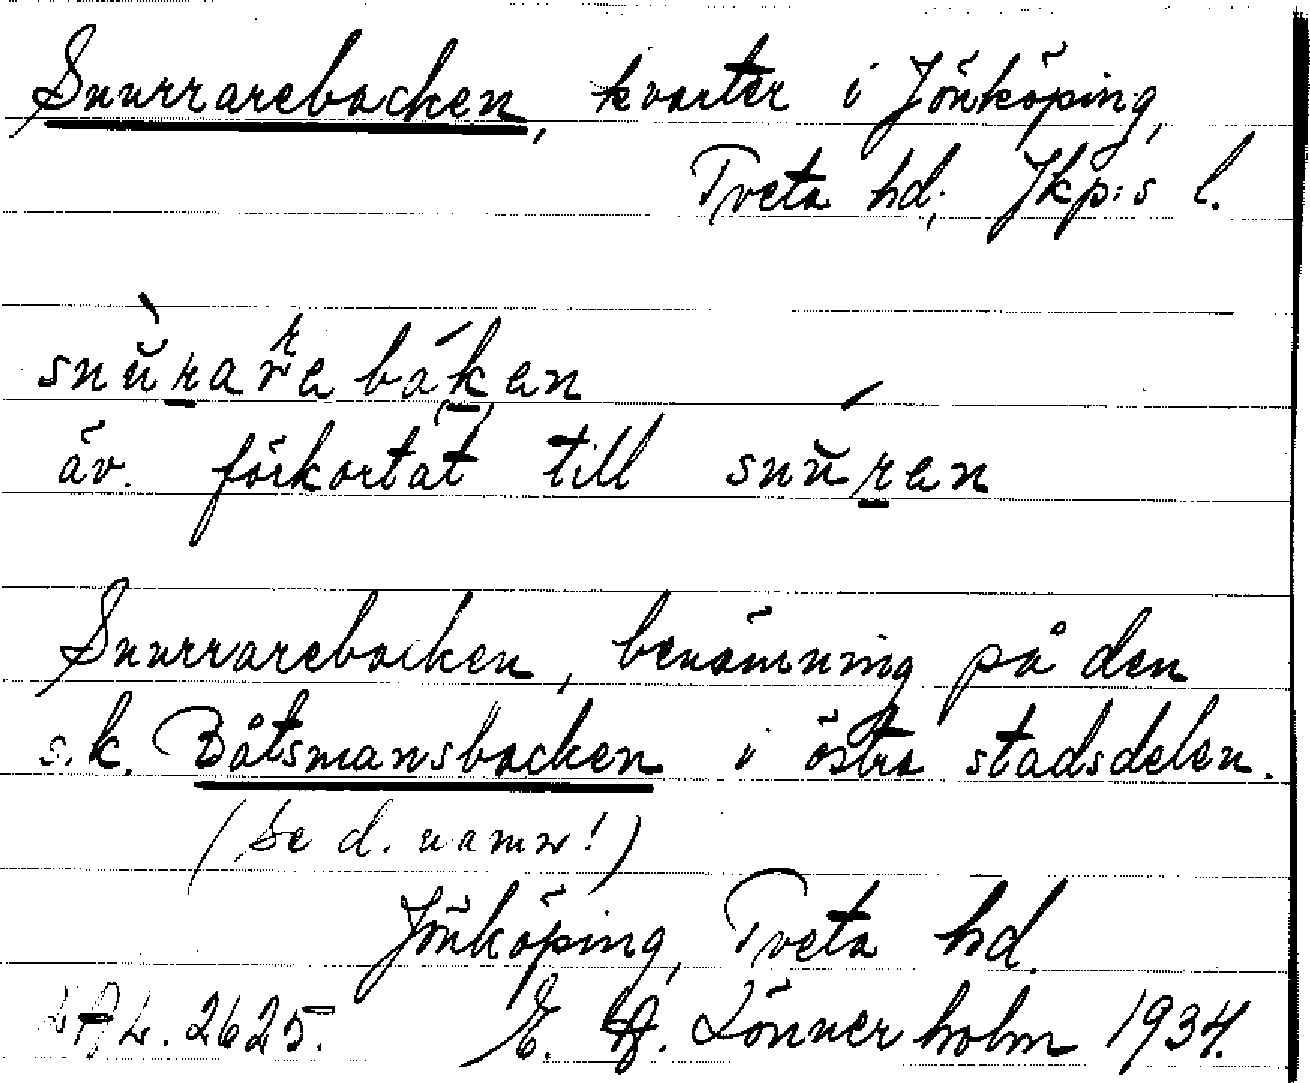 Snurrarebacken, kvarter i Jönköping,
Tveta hd; Jkp:s l.
snùrarebáken
äv. förkortat till snúren
Snurrarebacken, benämning på den
s.k. Båtsmansbacken i östra stadsdelen.
(Se d. namn!)
Jönköping, Tveta hd.
2625. E. Lönnerholm 1934.